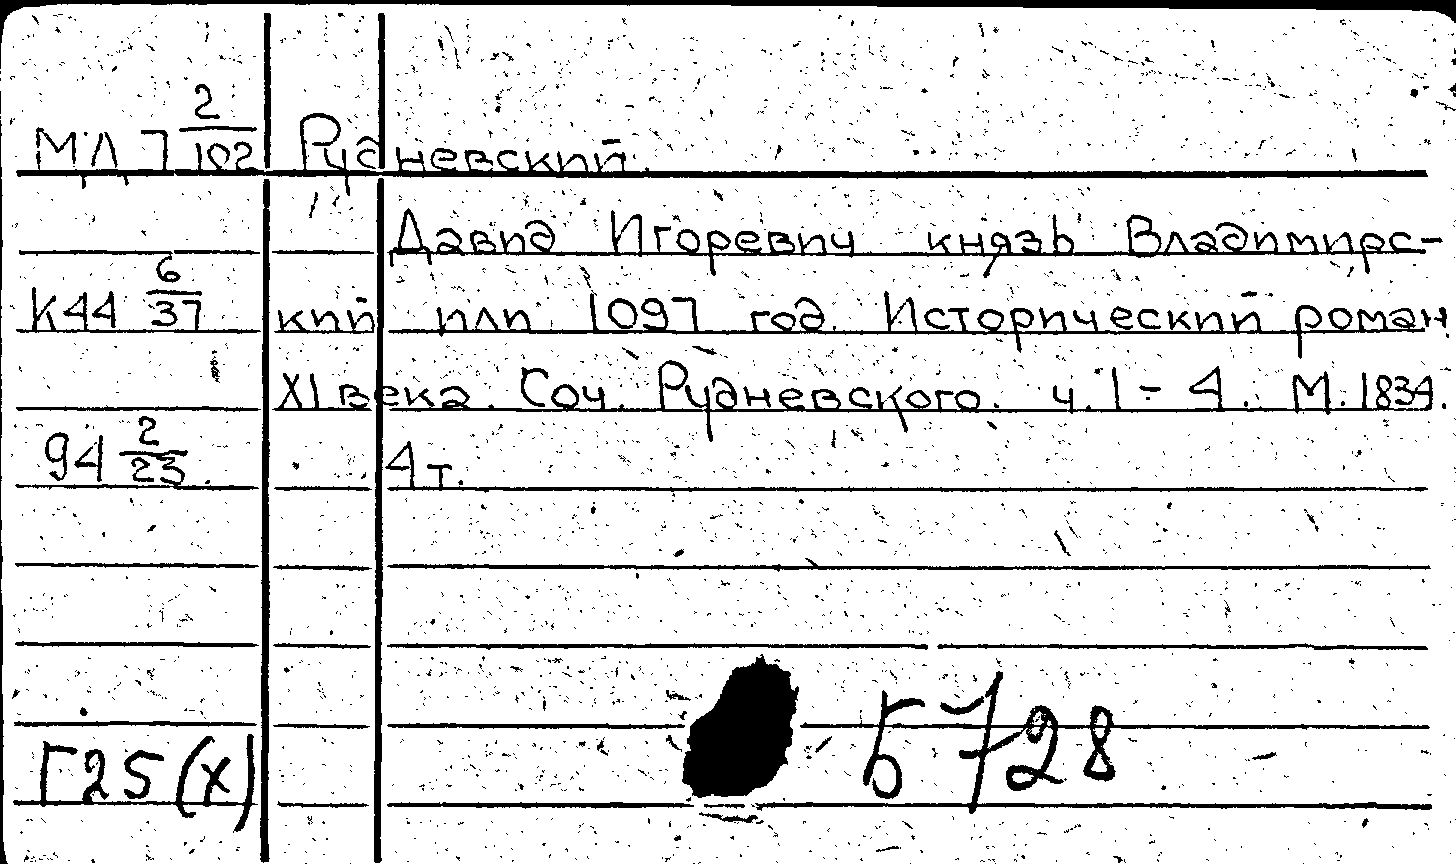 МД 7 2/102 Рудневский.
Давид Игоревич князь Владимирс-
К44 6/37 кий или 1097 год. Исторический роман
XI века. Соч. Рудневского. ч. 1 - 4. М. 1834.
94 2/23. 4 т.
Б 728
Г25(х)